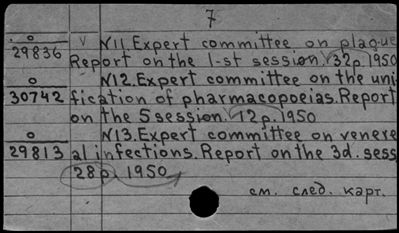 7
o
29836
V N11. Expert committee on plague
Report on the 1-st session. 32p. 1950
o
30742
N12. Expert committee on the uni
fication of pharmacopoeias. Report
on the 5 session. 12p. 1950
o
29813
N13. Expert committee on venere
al infections. Report on the 3d. sess
28p. 1950
см. след. карт.